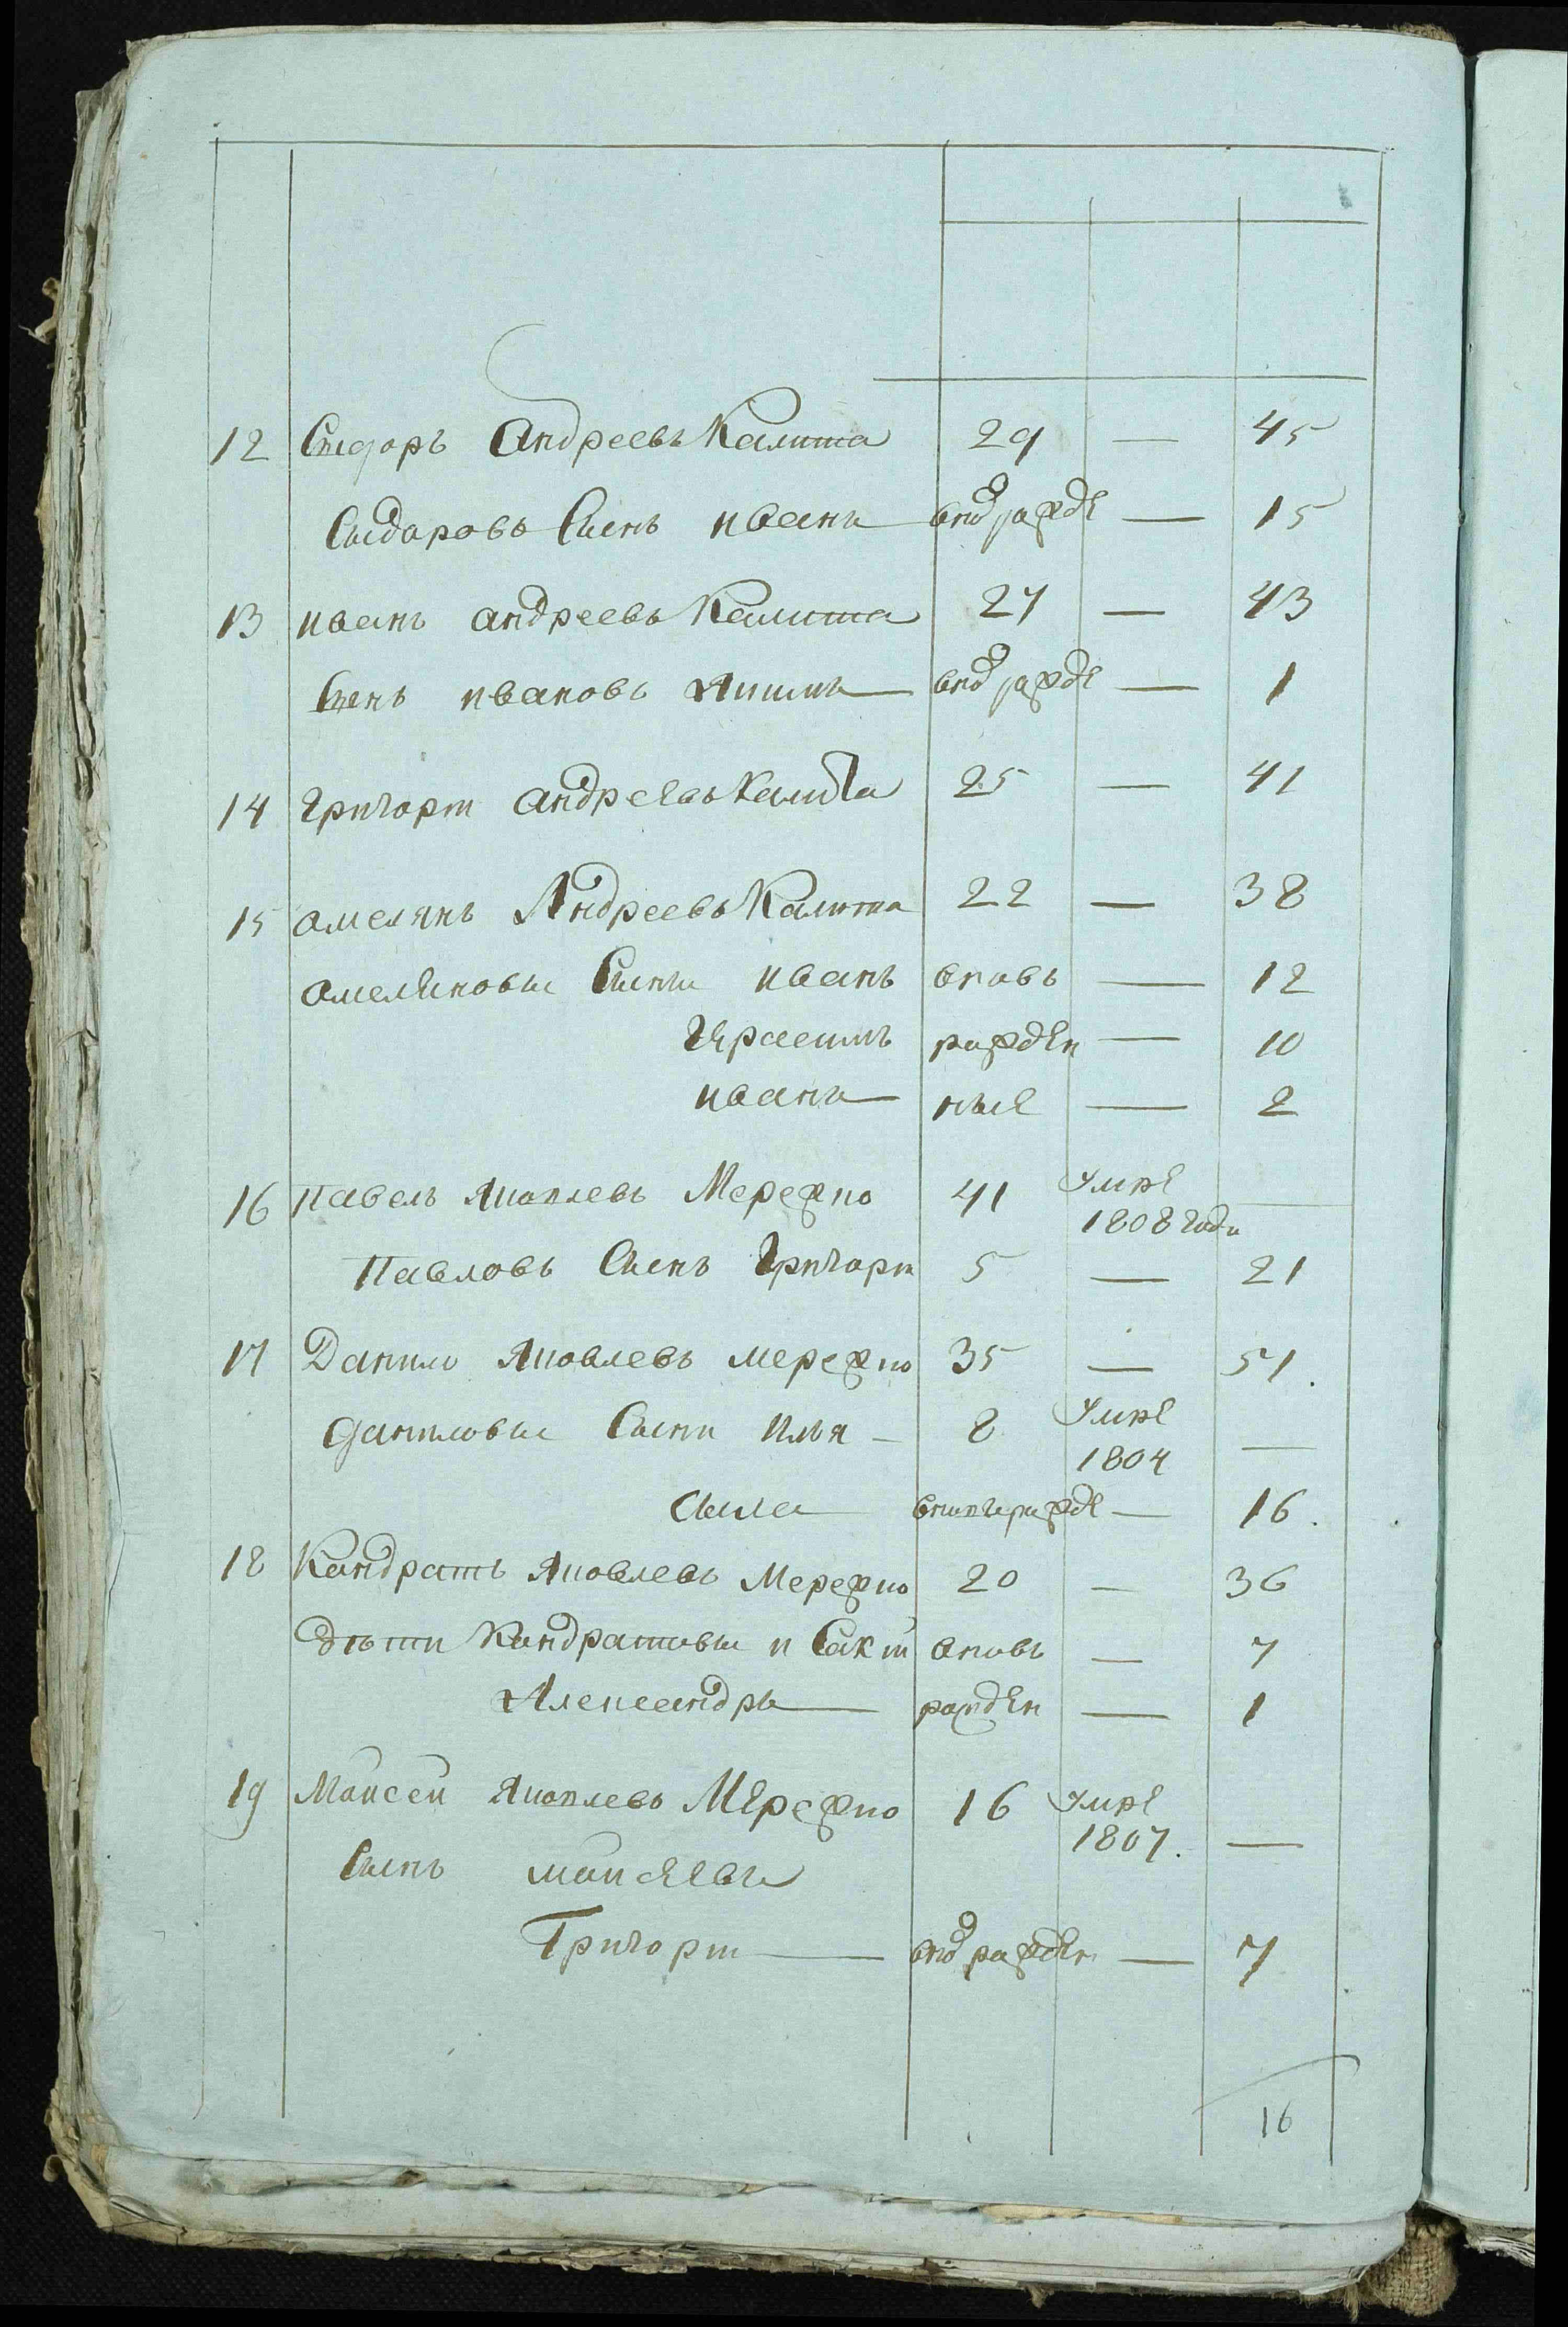 12 Сыдоръ Андреевъ Калита 29 — 45
Сыдоровъ Сынъ иванъ — внов рожде — 15
13 иванъ андреевъ Калита 27 — 43
Сынъ ивановъ — внов рожде — 1
14 григори андреевъ Калита 25 — 41
15 омелянъ Андреевъ Калита 22 — 38
омеляновы Сыны иванъ вновь — 12
Герасимъ рожден — 10
иванъ — ные — 2
16 Павелъ Яковлевъ Мережко 41 умре
1808 года
Павловъ Сынъ Григори 5 — 21
17 Данило Яковлевъ мережко 35 — 51.
даниловы Сыни илья — 8 умре
1804 —
Сыла — вновърожде — 16.
18 Кандратъ Яковлевъ Мережко 20 — 36
дъти Кандратовы иСакий вновь — 7
Александръ — рожден — 1
19 Моисей Яковлевъ Мережко 16 умре
1807. —
Сынъ моисеевъ
Григори — внов рожден — 7
16